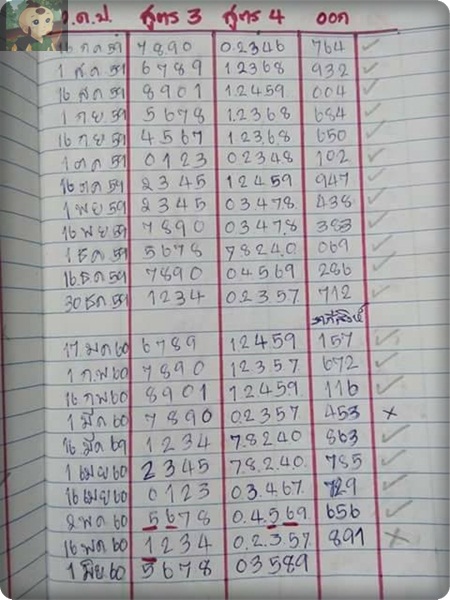 ว.ด.ป. สูตร 3 สูตร 4 ออก
ก ค 59 7890 0.2346 764 ✓
1 ส ค 59 6789 1.2368 932 ✓
16 ส ค 59 8901 1.2459 004 ✓
1 ก ย 59 5678 1.2.368 684 ✓
16 ก ย 59 4567 1.2.3.68 650 ✓
1 ต ค 59 0123 0.2348 102 ✓
16 ต ค 59 2345 12459 947 ✓
1 พ ย 59 2345 03.478 438 ✓
16 พ ย 59 7890 0347.8 383 ✓
1 ธ ค 59 5678 7.8.24.0 069 ✓
16 ธ ค 59 7890 04569 286 ✓
30 ธ ค 59 1234 0.2.3.5.7 712 ✓
17 ม ค 60 6789 1.2459 157 ✓
1 ก พ 60 7890 1.2357 672 ✓
16 ก พ 60 8901 1.2459 116 ✓
1 มี ค 60 7890 0.2357 453 ×
16 มี ค 1234 7.8240 863 ✓
1 เม ย 60 2345 78.2.40. 785 ✓
16 เม ย 60 0123 03.467. 729 ✓
2 พ ค 60 5678 0.4.569 656 ✓
16 พ ค 60 1234 0.2.3.57 891 ×
1 มิ ย 60 5678 03589